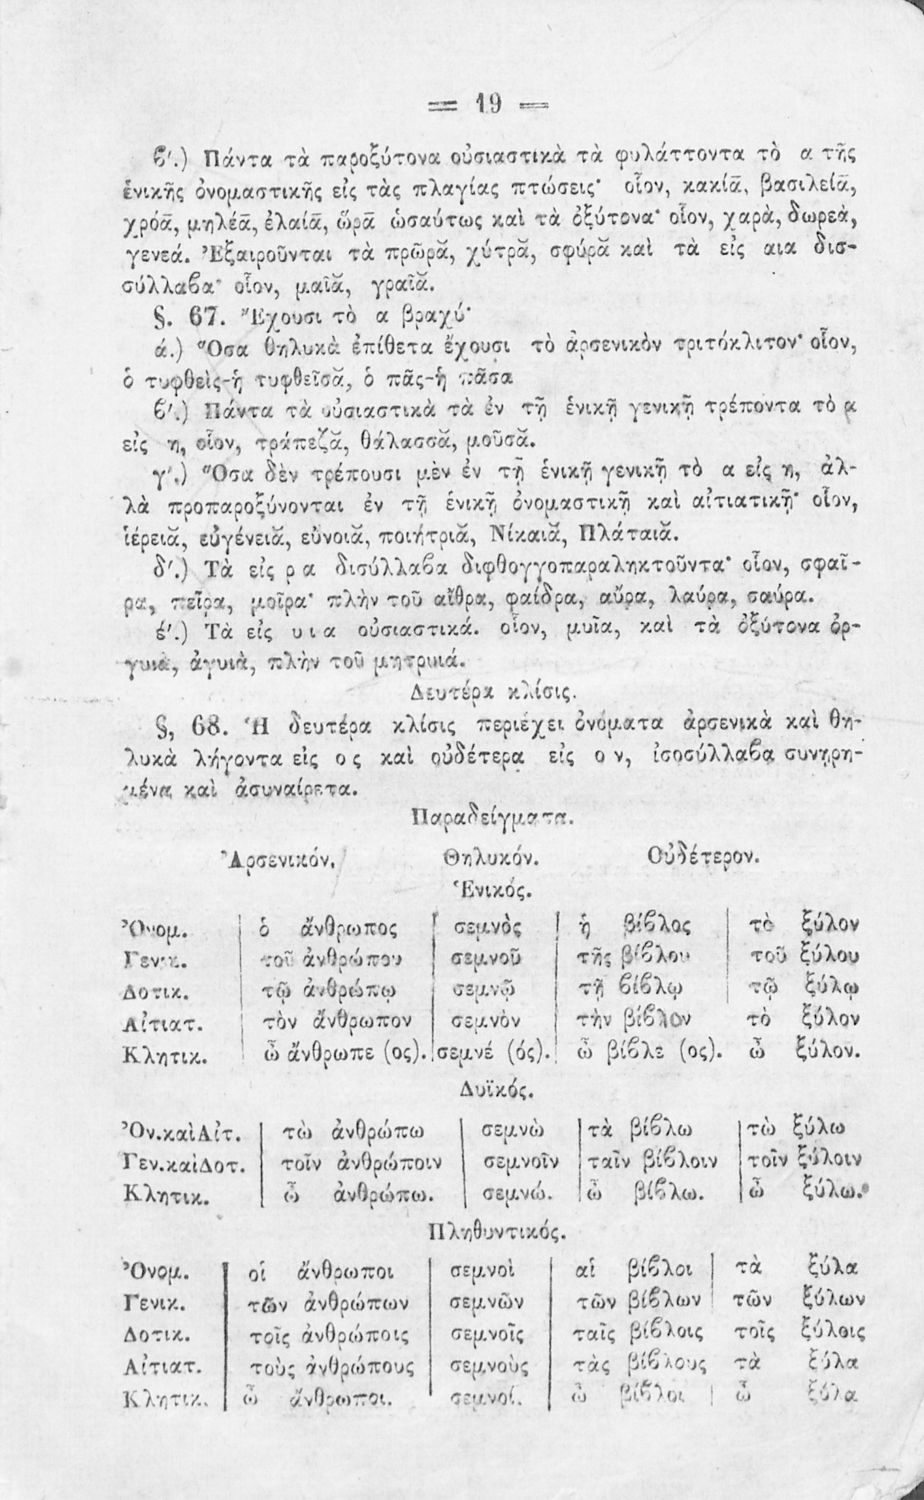 = 19 =
ϐ'.) Πάντα τὰ παροξύτονα οὐσιαστικὰ τὰ φυλάττοντα τὸ α τῆς
ἑνικῆς ὀνομαστικῆς εἰς τὰς πλαγίας πτώσεις· οἷον, κακία, βασιλεία,
χρόα, μηλέα, ἐλαία, ὥρα ὡσαύτως καὶ τὰ ὀξύτονα· οἷον, χαρὰ, δωρεὰ,
γενεά. Ἐξαιροῦνται τὰ πρῶρᾰ, χύτρᾰ, σφύρᾰ καὶ τὰ εἰς αια δισ-
σύλλαϐα· οἷον, μαῖᾰ, γραῖᾰ.
§. 67. Ἔχουσι τὸ α βραχύ·
ά.) Ὅσα θηλυκὰ ἐπίθετα ἔχουσι τὸ ἀρσενικὸν τριτόκλιτον· οἷον,
ὁ τυφθεὶς-ἡ τυφθεῖσᾰ, ὁ πᾶς-ἡ πᾶσα
ϐ'.) Πάντα τὰ οὐσιαστικὰ τὰ ἐν τῇ ἑνικῇ γενικῇ τρέποντα τὸ α
εἰς η, οἷον, τράπεζᾰ, θάλασσᾰ, μοῦσᾰ.
γ'.) Ὅσα δὲν τρέπουσι μὲν ἐν τῇ ἑνικῇ γενικῇ τὸ α εἰς η, ἀλ-
λὰ προπαροξύνονται ἐν τῇ ἑνικῇ ὀνομαστικῇ καὶ αἰτιατικῇ· οἷον,
ἱέρειᾰ, εὐγένειᾰ, εὔνοιᾰ, ποιήτριᾰ, Νίκαιᾰ, Πλάταιᾰ.
δ'.) Τὰ εἰς ρ α δισύλλαϐα διφθογγοπαραληκτοῦντα· οἷον, σφαῖ-
ρα, πεῖρα, μοῖρα· πλὴν τοῦ αἴθρα, φαίδρα, αὔρα, λαύρα, σαύρα.
έ'.) Τὰ εἰς υ ι α οὐσιαστικά. οἷον, μυῖα, καὶ τὰ ὀξύτονα ὀρ-
γυιὰ, ἀγυιὰ, πλὴν τοῦ μητρυιά.
Δευτέρα κλίσις.
§, 68. Ἡ δευτέρα κλίσις περιέχει ὀνόματα ἀρσενικὰ καὶ θη-
λυκὰ λήγοντα εἰς ο ς καὶ οὐδέτερα εἰς ο ν, ἰσοσύλλαϐα συνῃρη-
μένα καὶ ἀσυναίρετα.
Παραδείγματα.
Ἀρσενικόν. Θηλυκόν. Οὐδέτερον.
Ἑνικός.
Ὀνομ. ὁ ἄνθρωπος σεμνὸς ἡ βίϐλος τὸ ξύλον
Γενικ. τοῦ ἀνθρώπου σεμνοῦ τῆς βίϐλου τοῦ ξύλου
Δοτικ. τῷ ἀνθρώπῳ σεμνῷ τῇ ϐίϐλῳ τῷ ξύλῳ
Αἰτιατ. τὸν ἄνθρωπον σεμνὸν τὴν βίϐλον τὸ ξύλον
Κλητικ. ὦ ἄνθρωπε (ος). σεμνέ (ός). ὦ βίϐλε (ος). ὦ ξύλον.
Δυϊκός.
Ὀν.καὶΑἰτ. τὼ ἀνθρώπω σεμνὼ τὰ βίϐλω τὼ ξύλω
Γεν.καὶΔοτ. τοῖν ἀνθρώποιν σεμνοῖν ταῖν βίϐλοιν τοῖν ξύλοιν
Κλητικ. ὦ ἀνθρώπω. σεμνώ. ὦ βίϐλω. ὦ ξύλω.
Πληθυντικός.
Ὀνομ. οἱ ἄνθρωποι σεμνοὶ αἱ βίϐλοι τὰ ξύλα
Γενικ. τῶν ἀνθρώπων σεμνῶν τῶν βίϐλων τῶν ξύλων
Δοτικ. τοῖς ἀνθρώποις σεμνοῖς ταῖς βίϐλοις τοῖς ξύλοις
Αἰτιατ. τοὺς ἀνθρώπους σεμνοὺς τὰς βίϐλους τὰ ξύλα
Κλητικ. ὦ ἄνθρωποι. σεμνοί. ὦ βίϐλοι ὦ ξύλα